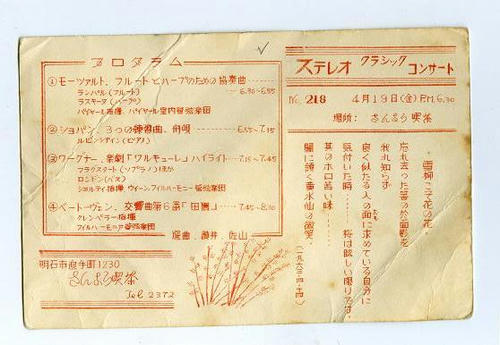 プログラム
①モーツァルト、フルートとハープのための協奏曲 6.30−6.55
ランパル(フルート)
ラスキーヌ(ハープ)
パイヤール指揮 パイヤール室内管弦楽団
②ショパン、3つの練習曲、舟唄 6.55−7.15
ルビンシュタイン(ピアノ)
③ワーグナー、楽劇「ワルキューレ」ハイライト 7.15−7.45
フラグスタート(ソプラノ)ほか
ロンドン(バス)
ショルティ指揮、ウィーン、フィルハーモニー管弦楽団
④ベートーヴェン、交響曲第6番「田園」 7.45−8.30
クレンペラー指揮
フィルハーモニア管弦楽団
選曲 佐山
明石市 町1230
さんぷら喫茶
Tel 2372
ステレオ クラシック コンサート
No. 218 4月19日(金)P.M. 6.30
場所: さんぷら喫茶
雪柳こそ花の花。
忘れ去った筈の於面影を
我れ知らず
良く似たる人の面に求めている自分に
気付いた時……、桜は眩しい限りです。
其のホロ苦い味……
闇に輝く黄水仙の微笑。